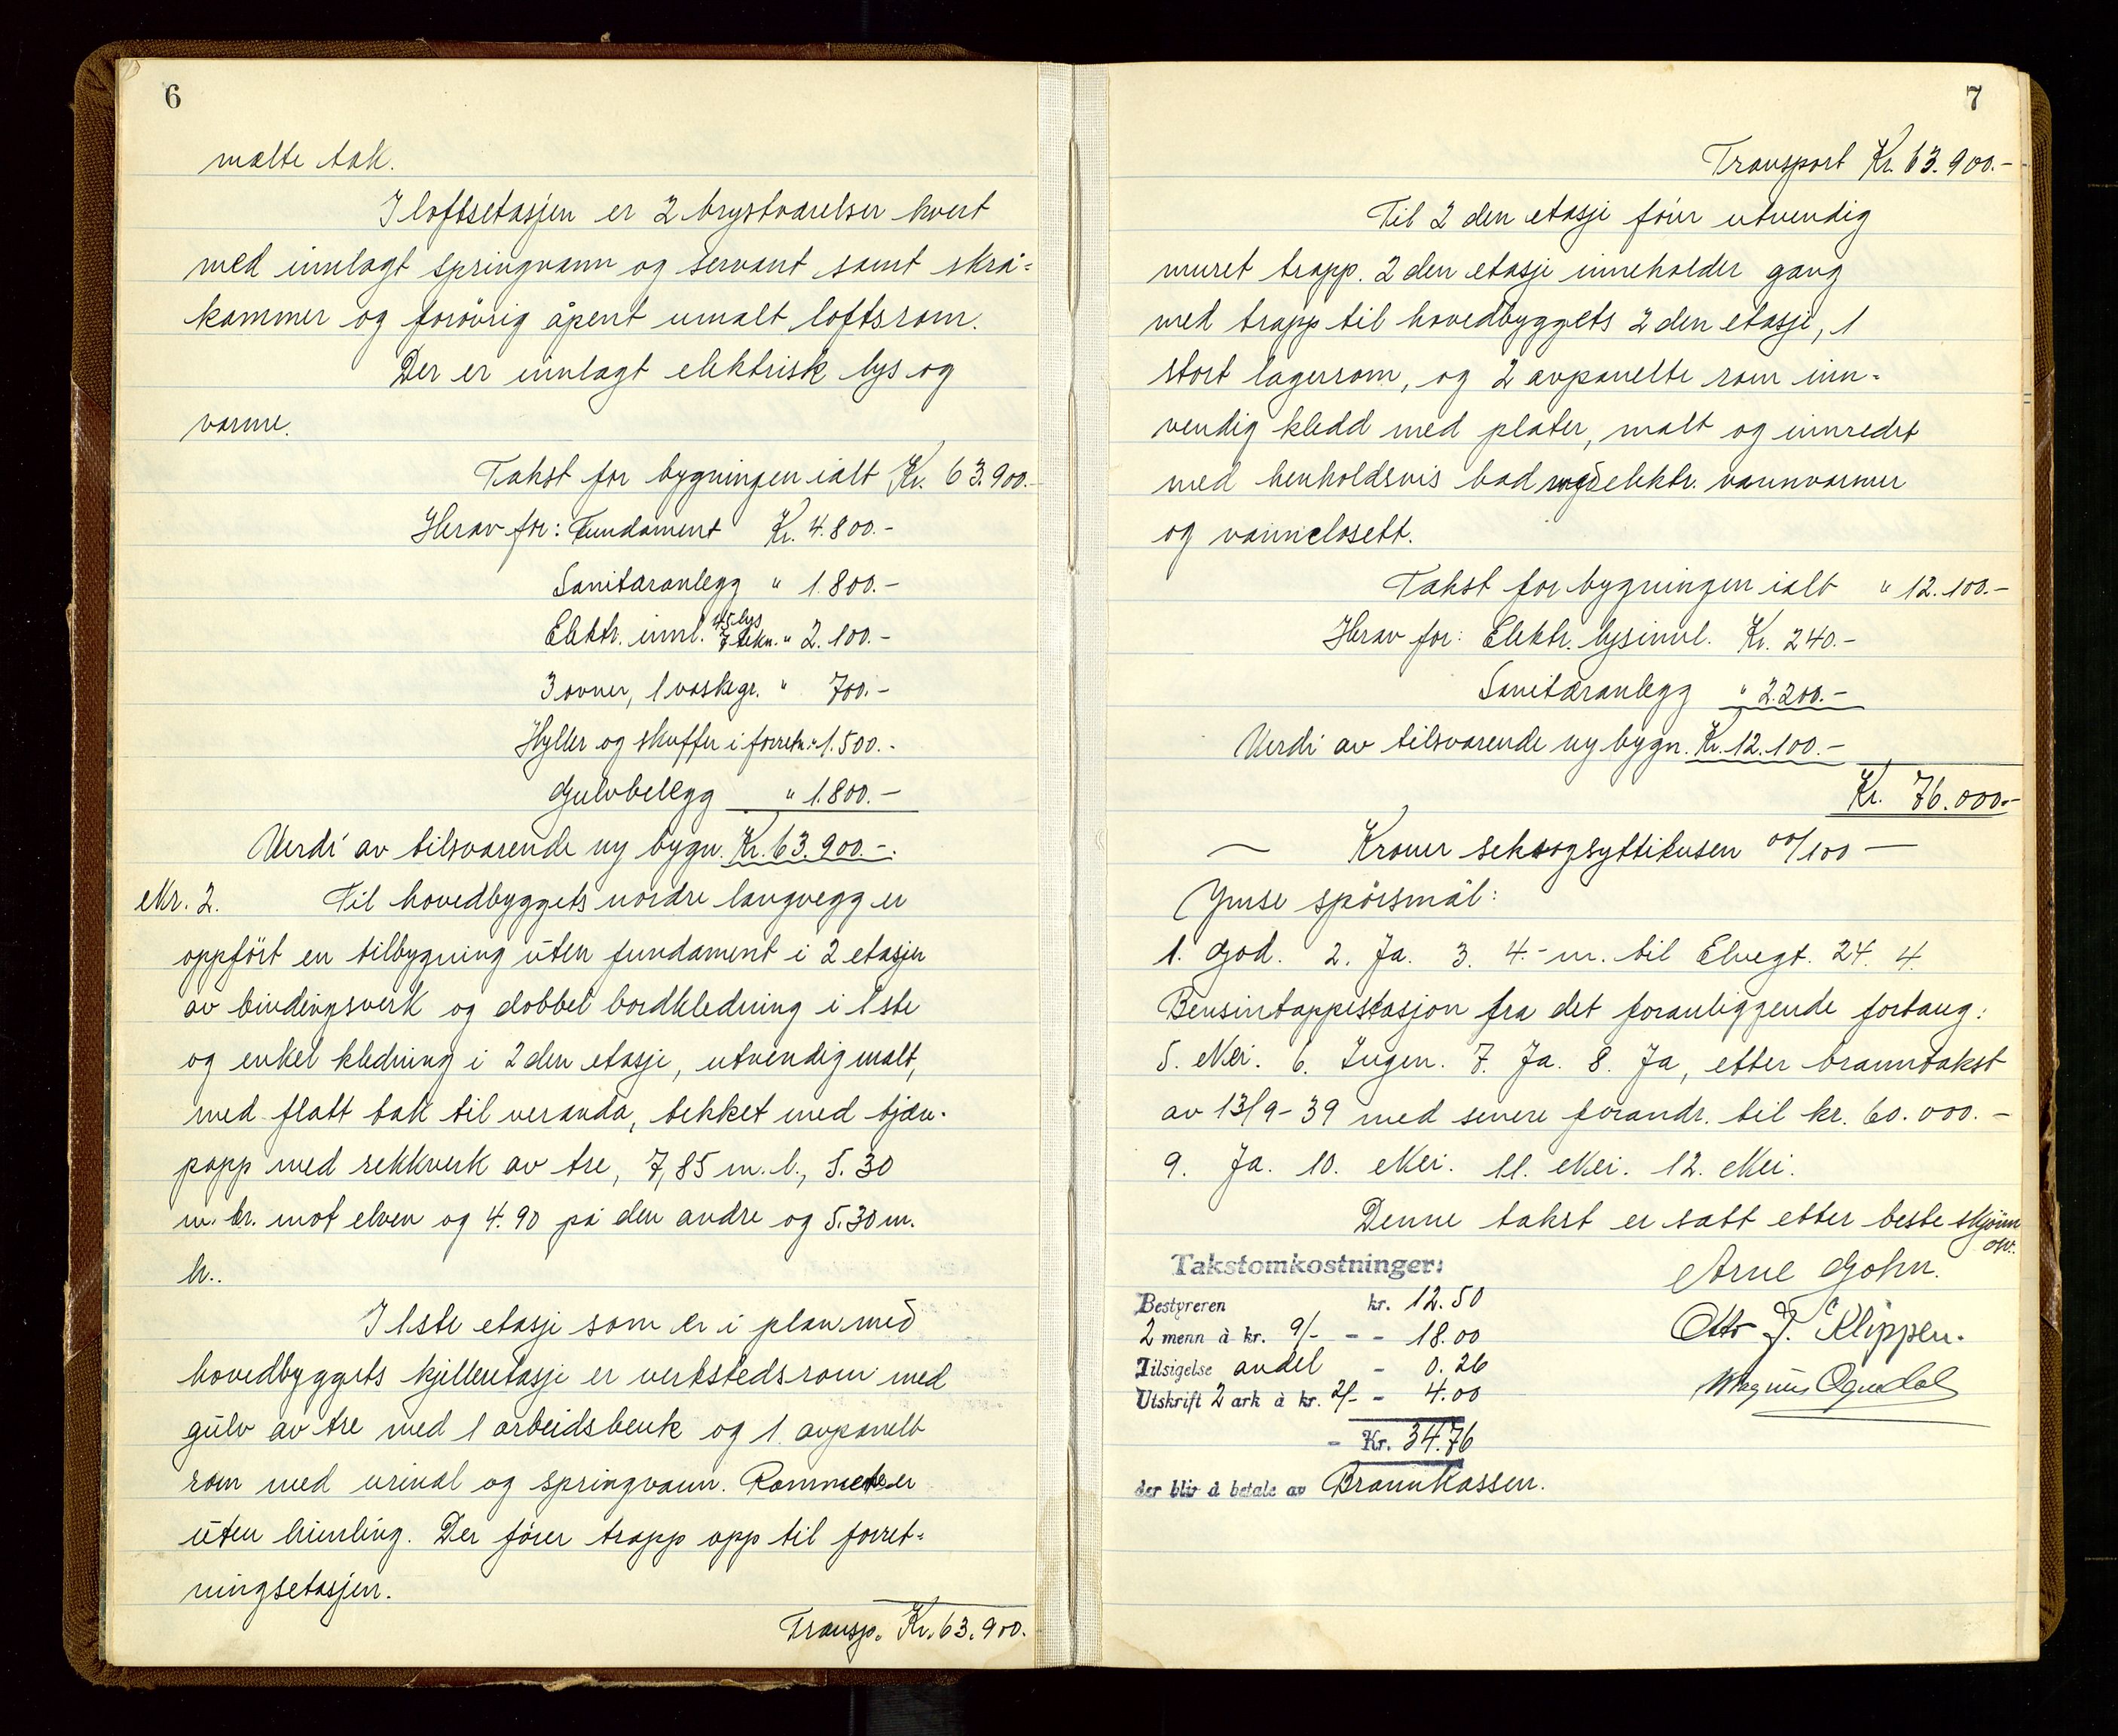 6
malte tak.
I loftsetasjen er 2 brystværelser hvert
med innlagt springvann og servant samt skrå=
kammer og forövrig åpent umalt loftsrom.
Der er innlagt elektrisk lys og
varme.
Takst for bygningen ialt Kr. 63.900.-
Herav for: Fundament Kr. 4.800.-
Sanitæranlegg " 1.800.-
Elektr. innl. 45 lys 7 tekn. " 2.100.-
3 ovner, 1 vaskegr. " 700.-
Hyller og skuffer i forretn. " 1.500.-
Gulvbelegg " 1.800.-
Verdi av tilsvarende ny bygn. Kr. 63.900.-.
Nr. 2. Til hovedbyggets nordre langvegg er
oppfört en tilbygning uten fundament i 2 etasjer
av bindingsverk og dobbel bordkledning i 1ste
og enkel kledning i 2den etasje, utvendig malt,
med flatt tak til veranda, tekket med tjære-
papp med rekkverk av tre, 7,85 m. l., 5.30
m. br. mot elven og 4.90 på den andre og 5.30 m.
h..
I 1ste etasje som er i plan med
hovedbyggets kjelleretasje er verkstedsrom med
gulv av tre med 1 arbeidsbenk og 1 avpanelt
rom med urinal og springvann. Rommene er
uten himling. Der förer trapp opp til forret=
ningsetasjen.
Transp. Kr. 63.900.
7
Transport Kr. 63.900.-
Til 2den etasje förer utvendig
muret trapp. 2den etasje inneholder gang
med trapp til hovedbyggets 2den etasje, 1
stort lagerrom, og 2 avpanelte rom inn=
vendig kledd med plater, malt og innredet
med henholdsvis bad med elektr. vannvarmer
og vannclosett.
Takst for bygningen ialt " 12.100.-
Herav for: Elektr. lysinnl. Kr. 240.-
Sanitæranlegg " 2.200.-
Verdi av tilsvarende ny bygn. Kr. 12.100.-
Kr. 76.000.-
— Kroner seksogsyttitusen 00/100 —
Ymse spörsmål:
1. God. 2. Ja. 3. 4.- m. til Elvegt. 24. 4.
Bensintappestasjon fra det foranliggende fortaug.
5. Nei. 6. Ingen. 7. Ja. 8. Ja, etter branntakst
av 13/9-39 med senere forandr. til kr. 60.000.-
9. Ja. 10. Nei. 11. Nei. 12. Nei.
Denne takst er satt etter beste skjönn
Takstomkostninger:
Bestyreren kr. 12.50
2 menn à kr. 9/- - - 18.00
Tilsigelse andel - 0.26
Utskrift 2 ark à kr. 2/- - 4.00
- Kr. 34.76
der blir å betale av Brannkassen.
Arne Gohn.
Otto J. Klippen.
Magnus Ognedal